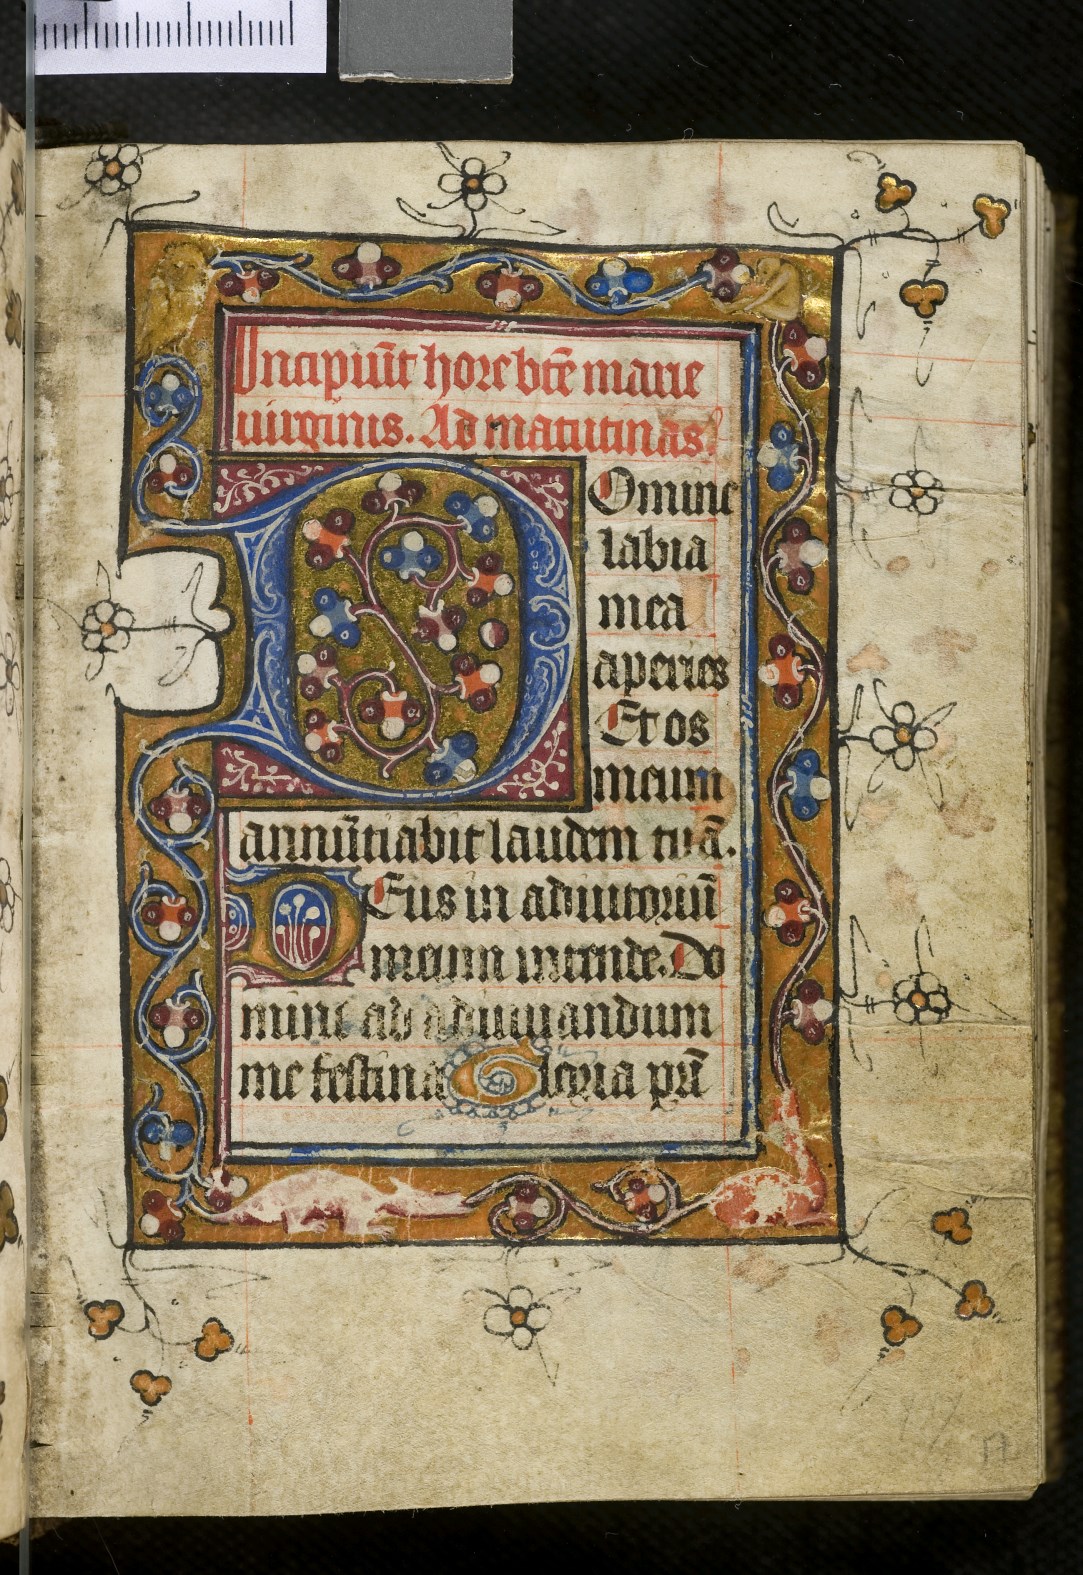 Incipiūt hore btē marie
uirginis. Ad matutinas.
Domine
labia
mea
aperies
Et os
meum
annūtiabit laudem tuā.
Deus in adiutoriū
meum intende. Do
mine ad adiuuandum
me festina Gloria prī
17